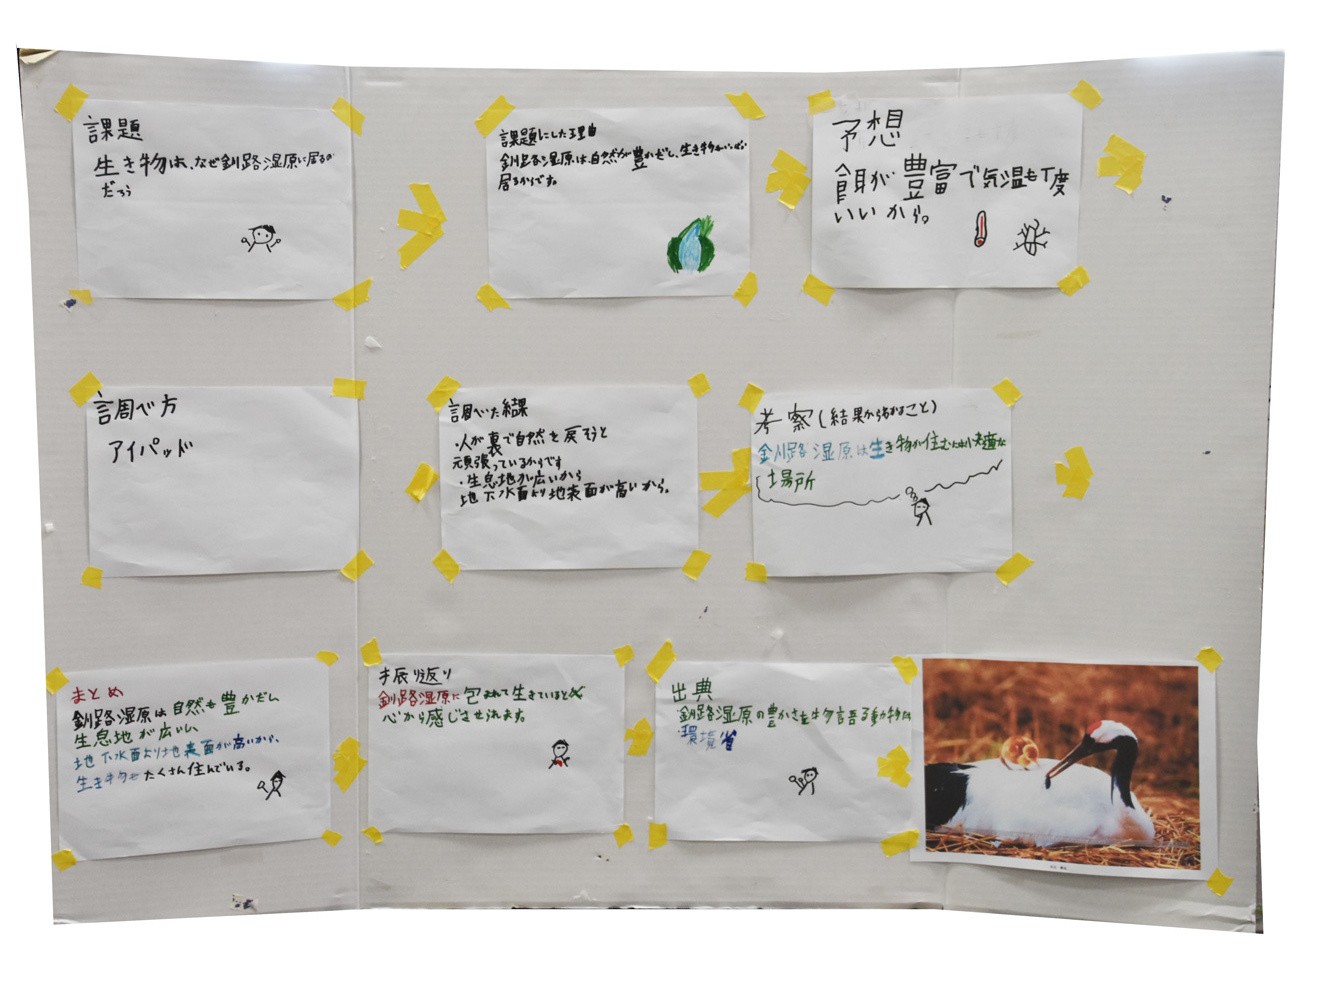 課題
生き物は、なぜ釧路湿原に居るの
だろう
課題にした理由
釧路湿原は、自然が豊かだし、生き物がいっぱい
居るからです。
予想
餌が豊富で気温も丁度
いいから。
調べ方
アイパッド
調べた結果
・人が裏で自然を戻そうと
頑張っているからです
・生息地が広いから
地下水面より地表面が高いから。
考察(結果から考おること)
釧路湿原は生き物が住むには快適な
場所
まとめ
釧路湿原は自然も豊かだし
生息地が広いし、
地下水面より地表面が高いから、
生き物もたくさん住んでいる。
振り返り
釧路湿原に包まれて生きていると
心から感じさせられます。
出典
釧路湿原の豊かさを物語る動物たち
・環境省